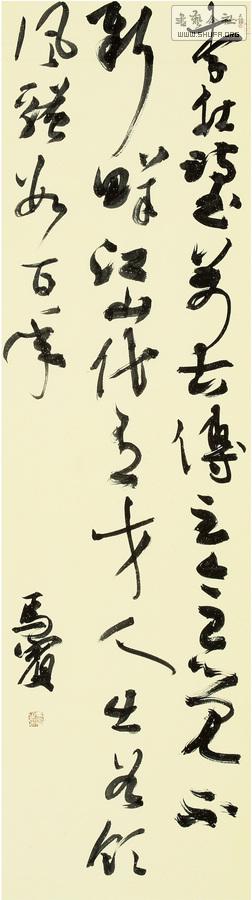 李杜詩篇萬古傳至今已覺不
新鮮江山代有才人出各領
風騷數百年
馬
WWW.SHUFA.ORG